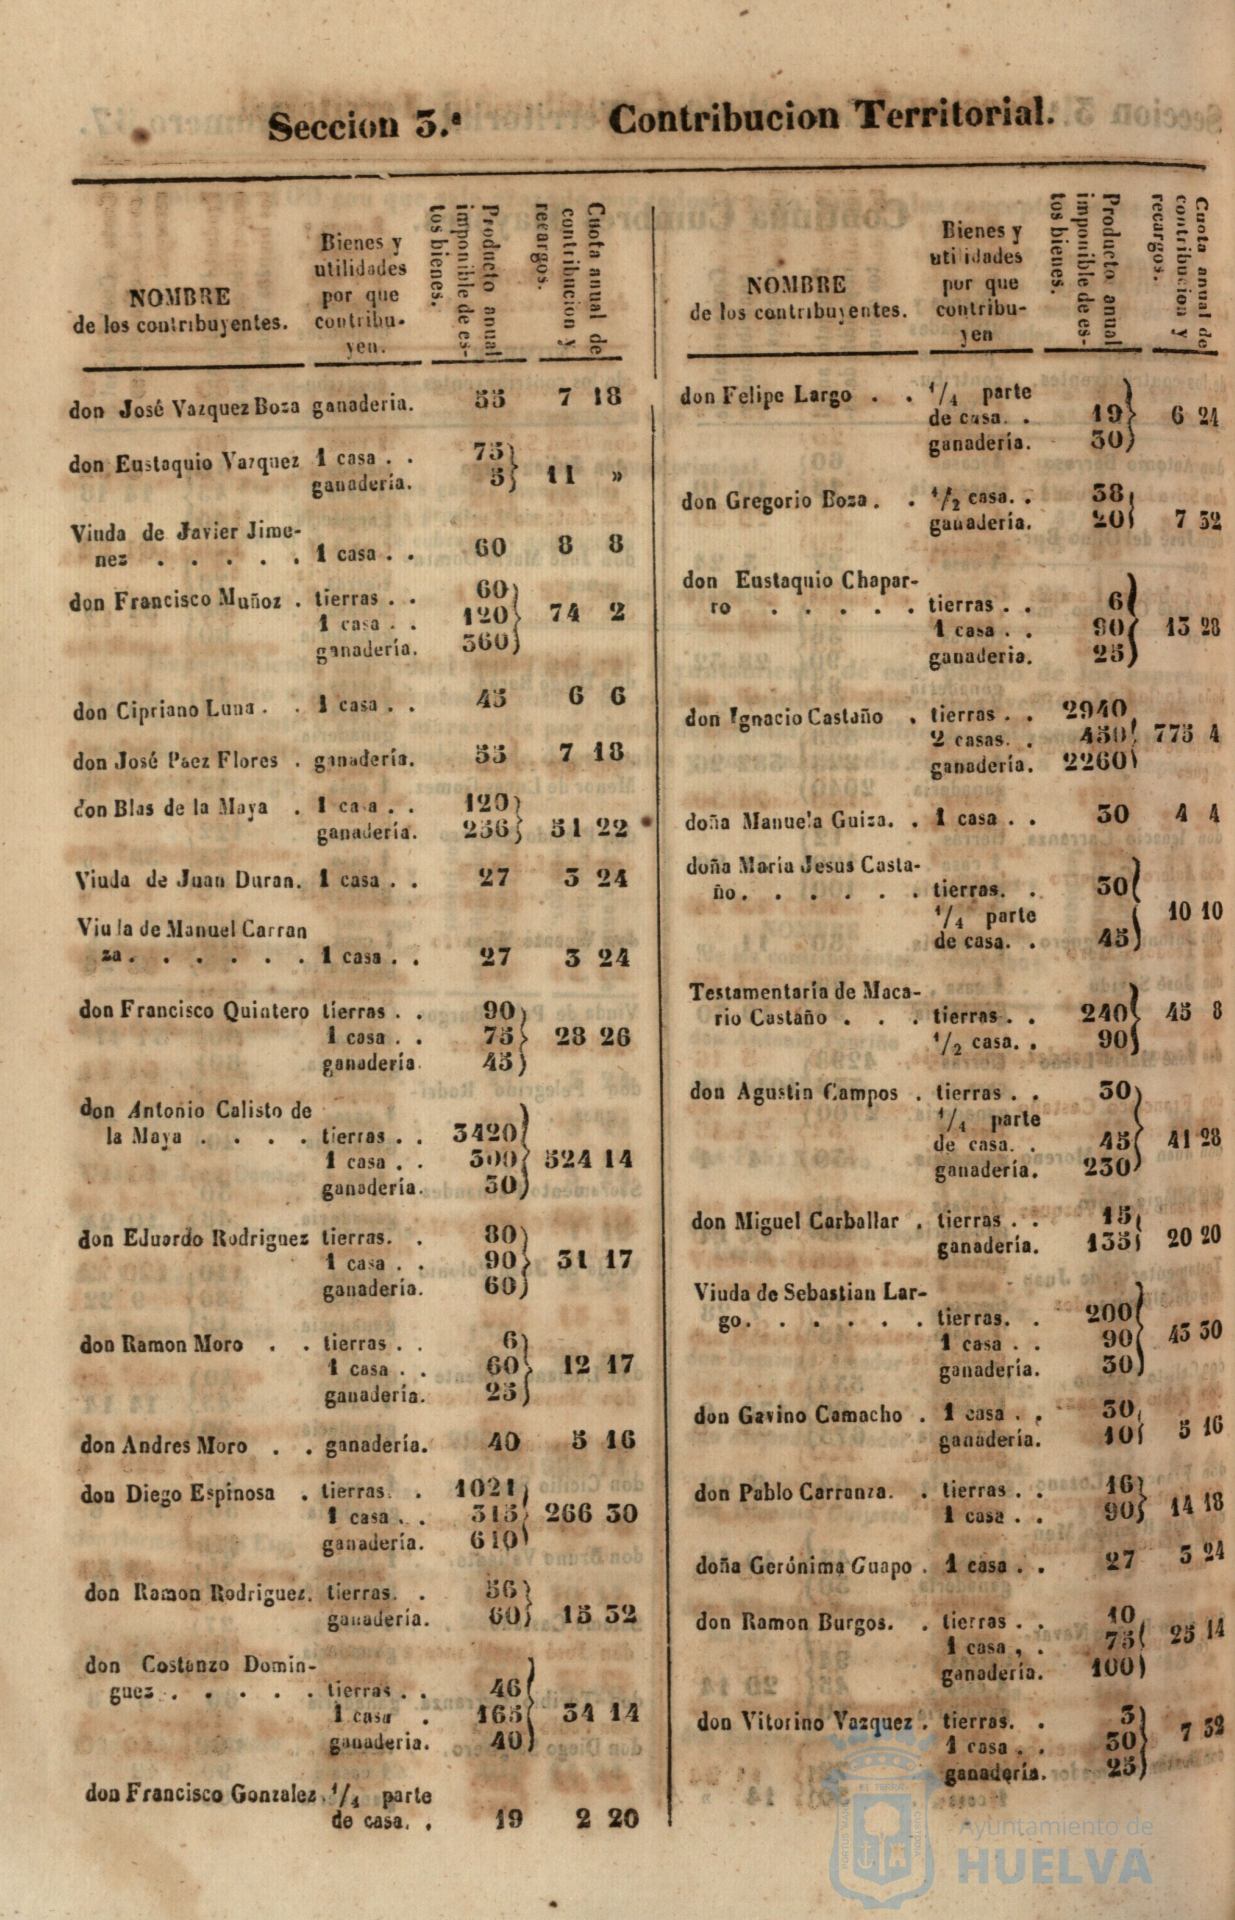 Seccion 3.ª Contribucion Territorial.
NOMBRE
de los contribuyentes.
Bienes y
utilidades
por que
contribu-
yen.
Producto anual
imponible de es-
tos bienes.
Cuota anual de
contribucion y
recargos.
don José Vazquez Boza ganaderia. 55 7 18
don Eustaquio Vazquez 1 casa . . 75
ganadería. 5 11 »
Viuda de Javier Jime-
nez . . . . . 1 casa . . 60 8 8
don Francisco Muñoz . tierras . . 60
1 casa . . 120 74 2
ganadería. 360
don Cipriano Luna . . 1 casa . . 45 6 6
don José Paez Flores . ganadería. 55 7 18
don Blas de la Maya . 1 ca a . . 120
ganadería. 256 51 22
Viuda de Juan Duran. 1 casa . . 27 3 24
Viuda de Manuel Carran
za . . . . . . 1 casa . . 27 3 24
don Francisco Quintero tierras . . 90
1 casa . . 75 28 26
ganadería 45
don Antonio Calisto de
la Maya . . . . tierras . . 3420
1 casa . . 300 524 14
ganadería. 30
don Eduardo Rodriguez tierras. . 80
1 casa . . 90 31 17
ganadería. 60
don Ramon Moro . . tierras . . 6
1 casa . . 60 12 17
ganadería. 25
don Andres Moro . . ganadería. 40 5 16
don Diego Espinosa . tierras. . 1021
1 casa . . 315 266 30
ganadería. 610
don Ramon Rodriguez. tierras. . 56
ganadería. 60 15 32
don Costanzo Domin-
guez . . . . . tierras . . 46
1 casa . 165 34 14
ganaderia. 40
don Francisco Gonzalez. 1/4 parte
de casa. . 19 2 20
NOMBRE
de los contribuyentes.
Bienes y
uti idades
por que
contribu-
yen
Producto anual
imponible de es-
tos bienes.
Cuota anual de
contribucion y
recargos.
don Felipe Largo . . 1/4 parte
de casa. . 19 6 24
ganadería. 30
don Gregorio Boza . . 1/2 casa. . 38
ganadería. 20 7 32
don Eustaquio Chapar-
ro . . . . . tierras . . 6
1 casa . . 90 13 28
ganaderia. 25
don Ignacio Castaño . tierras . . 2940
2 casas. . 450 775 4
ganadería. 2260
doña Manuela Guiza. . 1 casa . . 30 4 4
doña María Jesus Casta-
ño . . . . . . tierras. . 30
1/4 parte 10 10
de casa. . 45
Testamentaría de Maca-
rio Castaño . . . tierras . . 240 45 8
1/2 casa. . 90
don Agustin Campos . tierras . . 30
1/4 parte
de casa. . 45 41 28
ganadería. 230
don Miguel Carballar . tierras . . 15
ganadería. 135 20 20
Viuda de Sebastian Lar-
go . . . . . . tierras. . 200
1 casa . . 90 43 30
ganadería. 30
don Gavino Camacho . 1 casa . . 30
ganadería. 10 5 16
don Pablo Carranza. . tierras . . 16
1 casa . . 90 14 18
doña Gerónima Guapo . 1 casa . . 27 3 24
don Ramon Burgos. . tierras . . 10
1 casa , . 75 25 14
ganadería. 100
don Vitorino Vazquez . tierras. . 3
1 casa . . 30 7 32
ganadería. 25
Ayuntamiento de
HUELVA